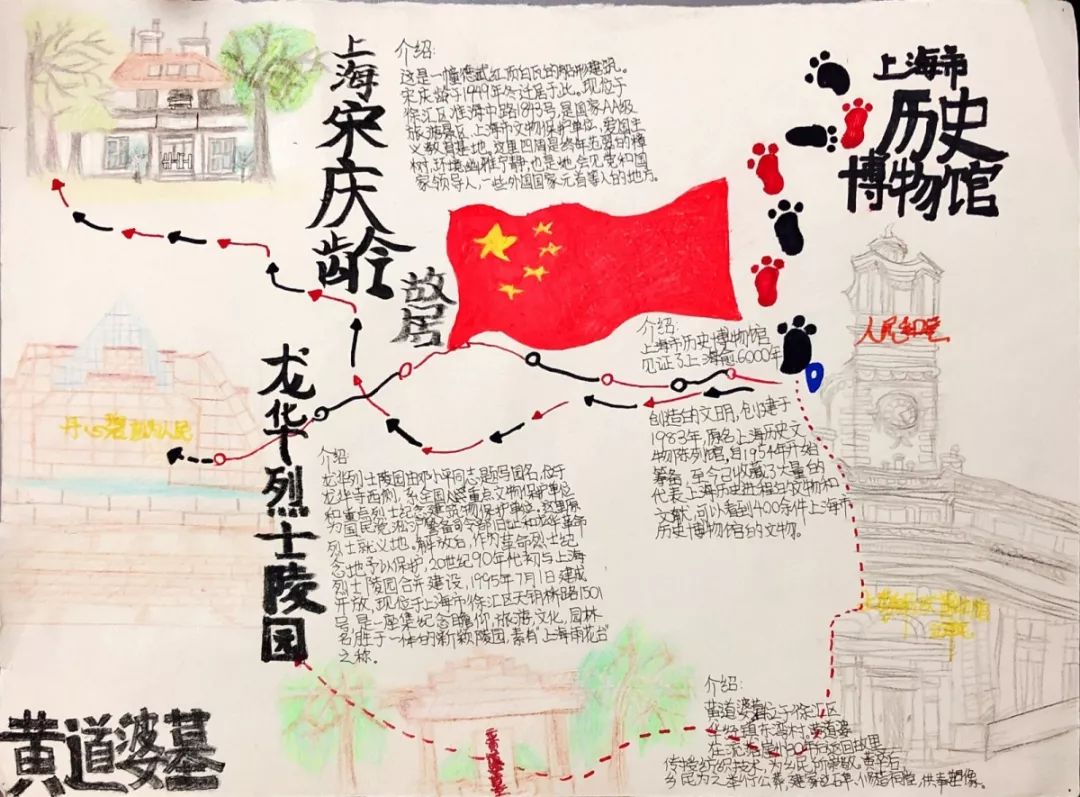 上海宋庆龄
故居
介绍:
这是一幢德式红顶白瓦的船形建筑。
宋庆龄于1949年冬迁居于此。现位于
徐汇区淮海中路1843号,是国家AA级
旅游景区、上海市文物保护单位,爱国主
义教育基地。这里四周是终年苍翠的樟
树,环境幽雅宁静,也是她会见党和国
家领导人,一些外国国家元首等人的地方。
上海市
历史
博物馆
介绍:
上海市历史博物馆
见证了上海前6000年
创造的文明,创建于
1983年,原名上海历史文
物陈列馆,自1954年开始
筹备,至今已收藏了大量的
代表上海历史进程的文物和
文献,可以看到400余件上海市
历史博物馆的文物。
龙华烈士陵园
介绍
龙华烈士陵园由邓小平同志题写园名,位于
龙华寺西侧,系全国人民重点文物保护单位
和重点烈士纪念建筑物保护单位。这里原
为国民党淞沪警备司令部旧址和龙华革命
烈士就义地。解放后,作为革命烈士纪
念地予以保护,20世纪90年代初与上海
烈士陵园合并建设,1995年7月1日建成
开放,现位于上海市徐汇区天钥桥路1501
号,是一座集纪念瞻仰,旅游,文化,园林
名胜于一体的新颖陵园,素有“上海雨花台”
之称。
丹心碧 为人民
黄道婆墓
介绍:
黄道婆墓位于徐汇区
华泾镇东湾村,黄道婆
在元
传授纺织技术,为乡民所崇敬,黄卒后,
乡民为之举行公葬,
供奉塑像。